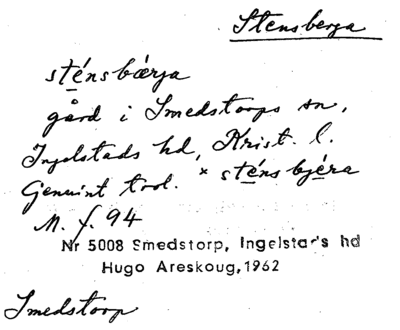 Stensberga
sténsbærja
gård i Smedstorps sn,
Ingelstads hd, Krist. l.
Genuint trol. * sténsbjéra
M. f. 94
Nr 5008 Smedstorp, Ingelstad's hd
Hugo Areskoug, 1962
Smedstorp